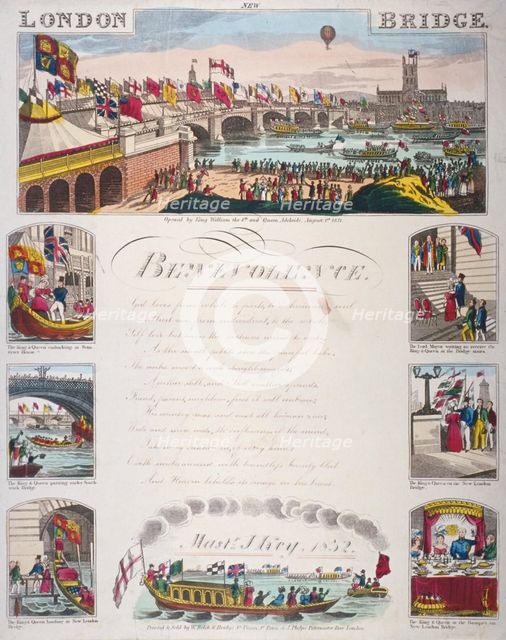 NEW
LONDON BRIDGE.
Opened by King William the 4th and Queen Adelaide, August 1st 1831.
BENEVOLENCE.
God loves from whole to parts, but human soul
Must rise from individual, to the whole.
Self love but serves the virtuous mind to wake,
As the small pebble stirs the peaceful lake;
The centre moved, a circle straight succeeds,
Another still, and still another spreads;
Friend, parent, neighbour, first it will embrace;
His country next and next all human race;
Wide and more wide, the o'erflowings of the mind,
Take every creature in, of every kind;
Earth smiles around, with boundless bounty blest,
And Heaven beholds its image in his breast.
The King & Queen embarking at Somerset House.
The King & Queen passing under Southwark Bridge.
The King & Queen landing at New London Bridge.
The Lord Mayor waiting to receive the King & Queen at the Bridge stairs.
The King & Queen on the New London Bridge.
The King & Queen at the Banquet on New London Bridge.
Mastr. J. Grey, 1832.
Printed & Sold by W. Belch
London
Heritage